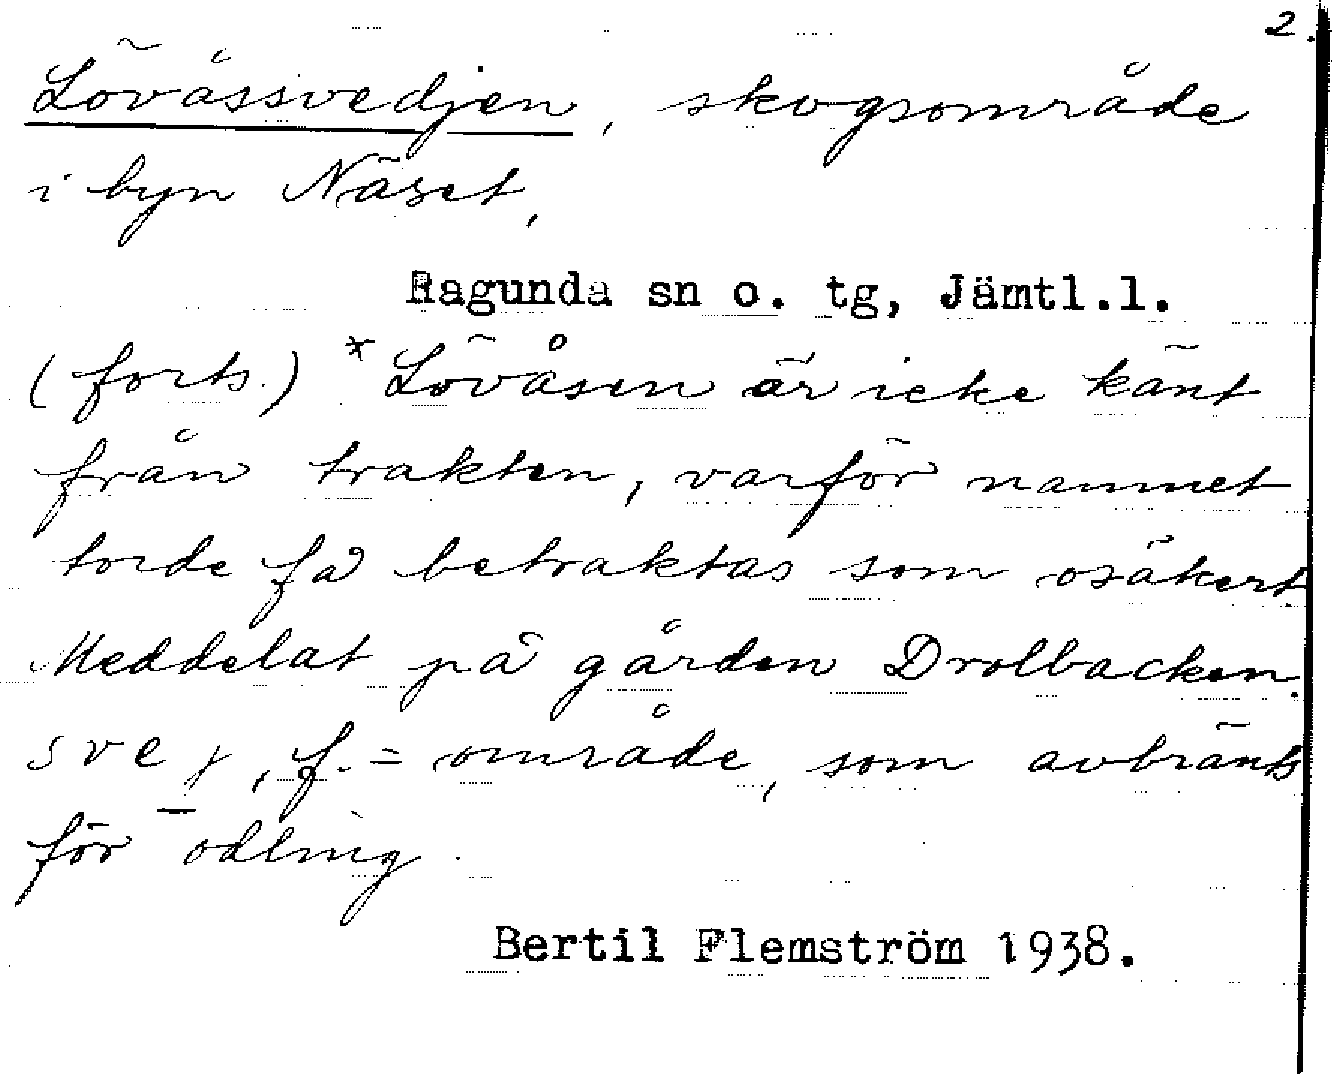 2.
Lövåssvedjen, skogsområde
i byn Näset,
Ragunda sn o. tg, Jämtl.l.
(forts.) *Lövåsen är icke känt
från trakten, varför namnet
torde få betraktas som osäkert.
Meddelat på gården Drolbacken.
svej, f. = område, som avbränts
för odling.
Bertil Flemström 1938.